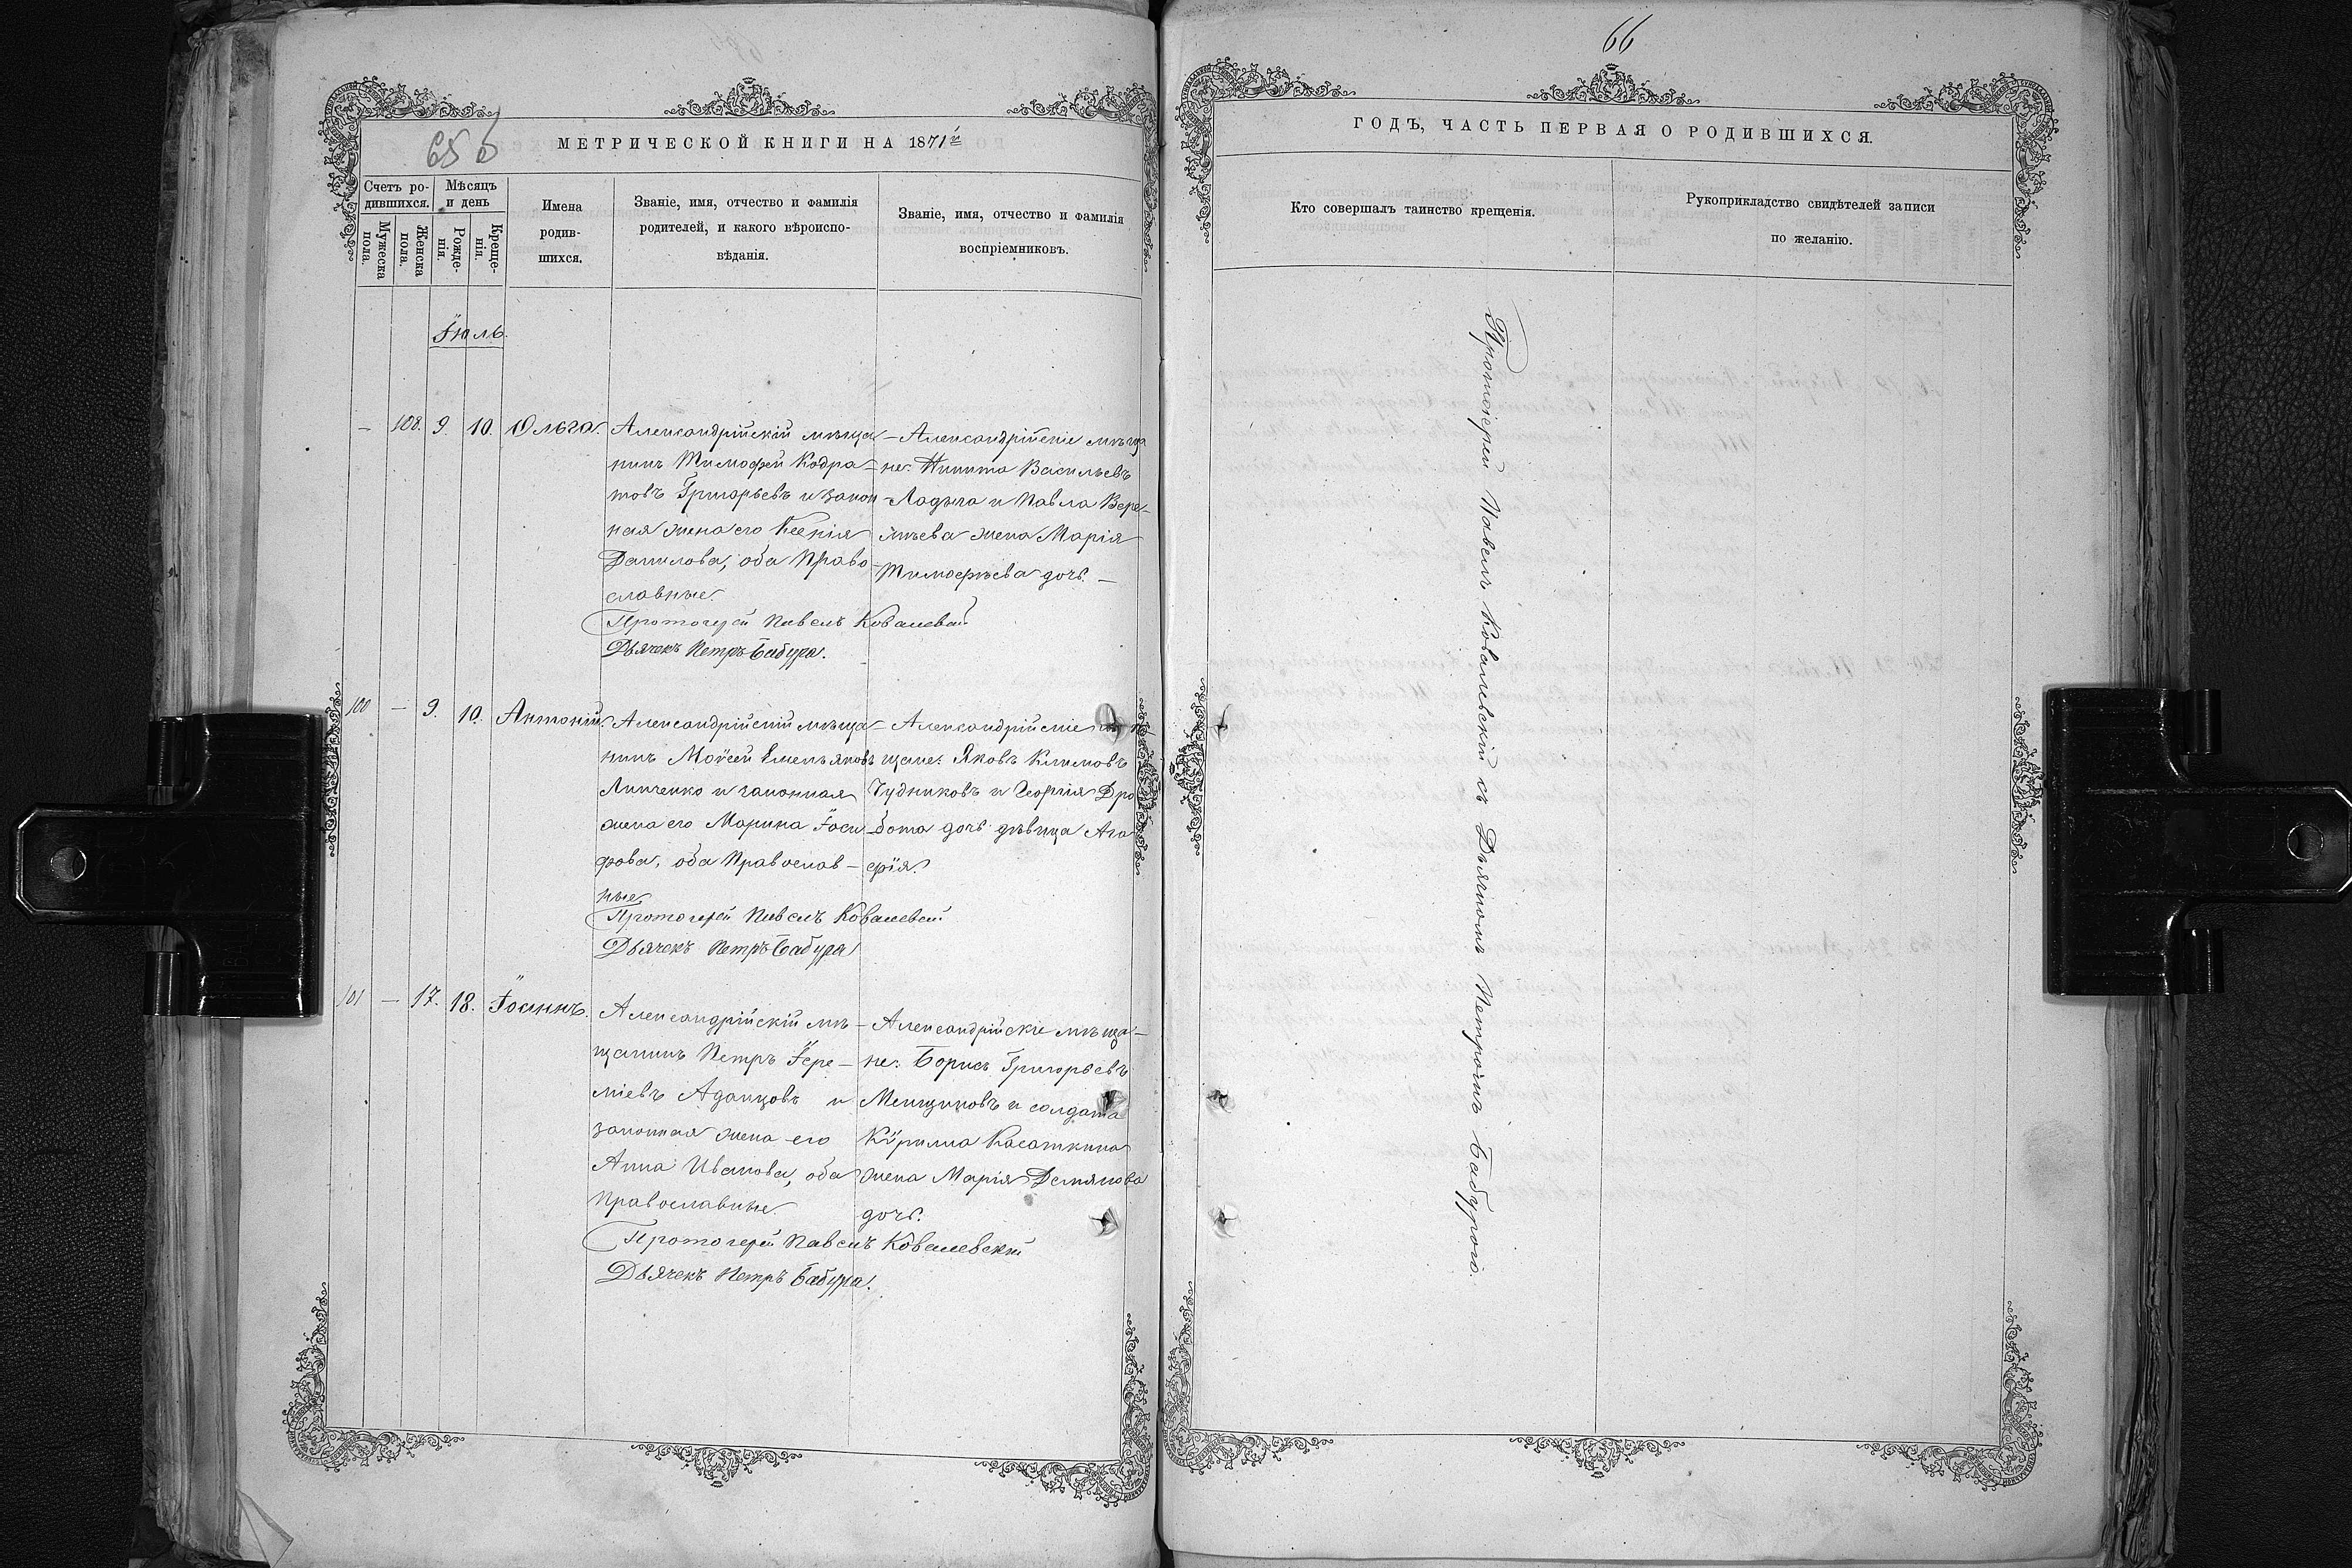 65 б
МЕТРИЧЕСКОЙ КНИГИ НА 1871й
Счетъ ро-
дившихся.
Мѣсяцъ
и день
Мужеска
пола.
Женска
пола.
Рожде-
нія.
Креще-
нія.
Имена
родив-
шихся.
Званіе, имя, отчество и фамилія
родителей, и какого вѣроиспо-
вѣданія.
Званіе, имя, отчество и фамилія
воспріемниковъ.
Іюль.
— 108. 9. 10. Ольга.
Александрійскій мѣща-
нинъ Тимофей Кодра-
товъ Григорьевъ и закон-
ная жена его Ксенія
Данилова, оба Право-
славные.
Протоіерей Павелъ Ковалевскій
Дьячекъ Петръ Бабура.
Александрійскіе мѣща
не: Никита Васильевъ
Ладыга и Павла Вере-
мѣева жена Марія
Тимофѣева дочь. —
100 — 9. 10. Антоній.
Александрійскій мѣща-
нинъ Моѵсей Емельяновъ
Линченко и законная
жена его Марина Іоси-
фова, оба Православ-
ные
Протоіерей Павелъ Ковалевскій
Дьячекъ Петръ Бабура
Александрійскіе мѣ-
щане: Яковъ Климовъ
Чудниковъ и Георгія Дро
бота дочь дѣвица Ага
фія.
101 — 17. 18. Іоаннъ.
Александрійскій мѣ-
щанинъ Петръ Іере-
міевъ Адамцовъ и
законная жена его
Анна Иванова, оба
Православные
Протоіерей Павелъ Ковалевскій
Дьячекъ Петръ Бабура.
Александрійскіе мѣща-
не: Борисъ Григорьевъ
Менщиковъ и солдата
Кѵрилла Касаткина
жена Марія Демянова
дочь.
66
ГОДЪ, ЧАСТЬ ПЕРВАЯ О РОДИВШИХСЯ.
Кто совершалъ таинство крещенія.
Рукоприкладство свидѣтелей записи
по желанію.
Протоіерей Павелъ Ковалевскій съ Дьячкомъ Петромъ Бабурою.